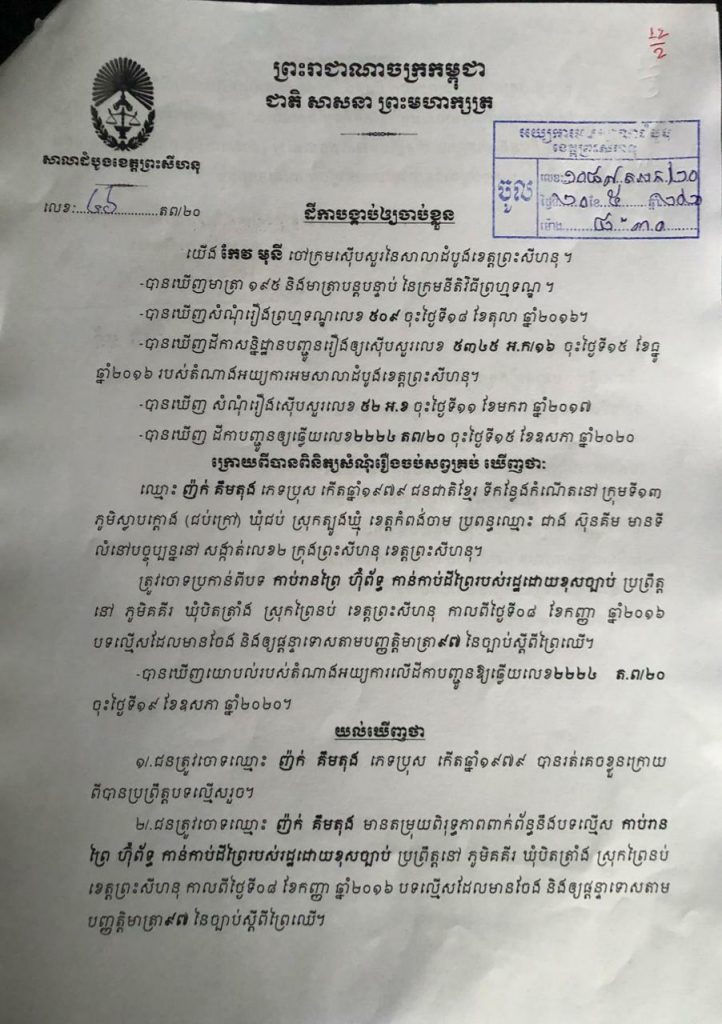 ព្រះរាជាណាចក្រកម្ពុជា
ជាតិ សាសនា ព្រះមហាក្សត្រ
សាលាដំបូងខេត្តព្រះសីហនុ
លេខ:....៤៥....តព/២០
ចូល
ដីកាបង្គាប់ឲ្យចាប់ខ្លួន
យើង កែវ មុនី ចៅក្រមស៊ើបសួរនៃសាលាដំបូងខេត្តព្រះសីហនុ ។
-បានឃើញមាត្រា ១៩៥ និងមាត្របន្តបន្ទាប់ នៃក្រមនីតិវិធីព្រហ្មទណ្ឌ ។
-បានឃើញសំណុំរឿងព្រហ្មទណ្ឌលេខ ៥០៩ ចុះថ្ងៃទី១៨ ខែតុលា ឆ្នាំ២០១៦។
-បានឃើញដីកាសន្និដ្ឋានបញ្ជូនរឿងឲ្យស៊ើបសួរលេខ ៥៣៤៥ អ.ក/១៦ ចុះថ្ងៃទី១៥ ខែធ្នូ
ឆ្នាំ២០១៦ របស់តំណាងអយ្យការអមសាលាដំបូងខេត្តព្រះសីហនុ។
-បានឃើញ សំណុំរឿងស៊ើបសួរលេខ ៥២ អ.ខ ចុះថ្ងៃទី១១ ខែមករា ឆ្នាំ២០១៧
-បានឃើញ ដីកាបញ្ជូនឲ្យឆ្លើយលេខ២២២៤ តព/២០ ចុះថ្ងៃទី១៥ ខែឧសភា ឆ្នាំ២០២០
ក្រោយពីបានពិនិត្យសំណុំរឿងចប់សព្វគ្រប់ ឃើញថា:
ឈ្មោះ ញ៉ក់ គឹមតុង ភេទប្រុស កើតឆ្នាំ១៩៧៩ ជនជាតិខ្មែរ ទីកន្លែងកំណើតនៅ ក្រុមទី១៣
ភូមិស្លាបក្តោង (ដប់ក្រៅ) ឃុំដប់ ស្រុកត្បូងឃ្មុំ ខេត្តកំពង់ចាម ប្រពន្ធឈ្មោះ ជាង ស៊ុនគីម មានទី
លំនៅបច្ចុប្បន្ននៅ សង្កាត់លេខ២ ក្រុងព្រះសីហនុ ខេត្តព្រះសីហនុ។
ត្រូវចោទប្រកាន់ពីបទ កាប់រានព្រៃ ហ៊ុំព័ទ្ធ កាន់កាប់ដីព្រៃរបស់រដ្ឋដោយខុសច្បាប់ ប្រព្រឹត្ត
នៅ ភូមិគគីរ ឃុំបិតត្រាំង ស្រុកព្រៃនប់ ខេត្តព្រះសីហនុ កាលពីថ្ងៃទី០៨ ខែកញ្ញា ឆ្នាំ២០១៦
បទល្មើសដែលមានចែង និងឲ្យផ្តន្ទាទោសតាមបញ្ញត្តិមាត្រា៩៧ នៃច្បាប់ស្តីពីព្រៃឈើ។
-បានឃើញយោបល់របស់តំណាងអយ្យការលើដីកាបញ្ជូនឱ្យឆ្លើយលេខ២២២៤ ត.ព/២០
ចុះថ្ងៃទី១៩ ខែឧសភា ឆ្នាំ២០២០។
យល់ឃើញថា
១/.ជនត្រូវចោទឈ្មោះ ញ៉ក់ គឹមតុង ភេទប្រុស កើតឆ្នាំ១៩៧៩ បានរត់គេចខ្លួនក្រោយ
ពីបានប្រព្រឹត្តបទល្មើសរួច។
២/.ជនត្រូវចោទឈ្មោះ ញ៉ក់ គឹមតុង មានតម្រុយពិរុទ្ធភាពពាក់ព័ន្ធនឹងបទល្មើស កាប់រាន
ព្រៃ ហ៊ុំព័ទ្ធ កាន់កាប់ដីព្រៃរបស់រដ្ឋដោយខុសច្បាប់ ប្រព្រឹត្តនៅ ភូមិគគីរ ឃុំបិតត្រាំង ស្រុកព្រៃនប់
ខេត្តព្រះសីហនុ កាលពីថ្ងៃទី០៨ ខែកញ្ញា ឆ្នាំ២០១៦ បទល្មើសដែលមានចែង និងឲ្យផ្តន្ទាទោសតាម
បញ្ញត្តិមាត្រា៩៧ នៃច្បាប់ស្តីពីព្រៃឈើ។